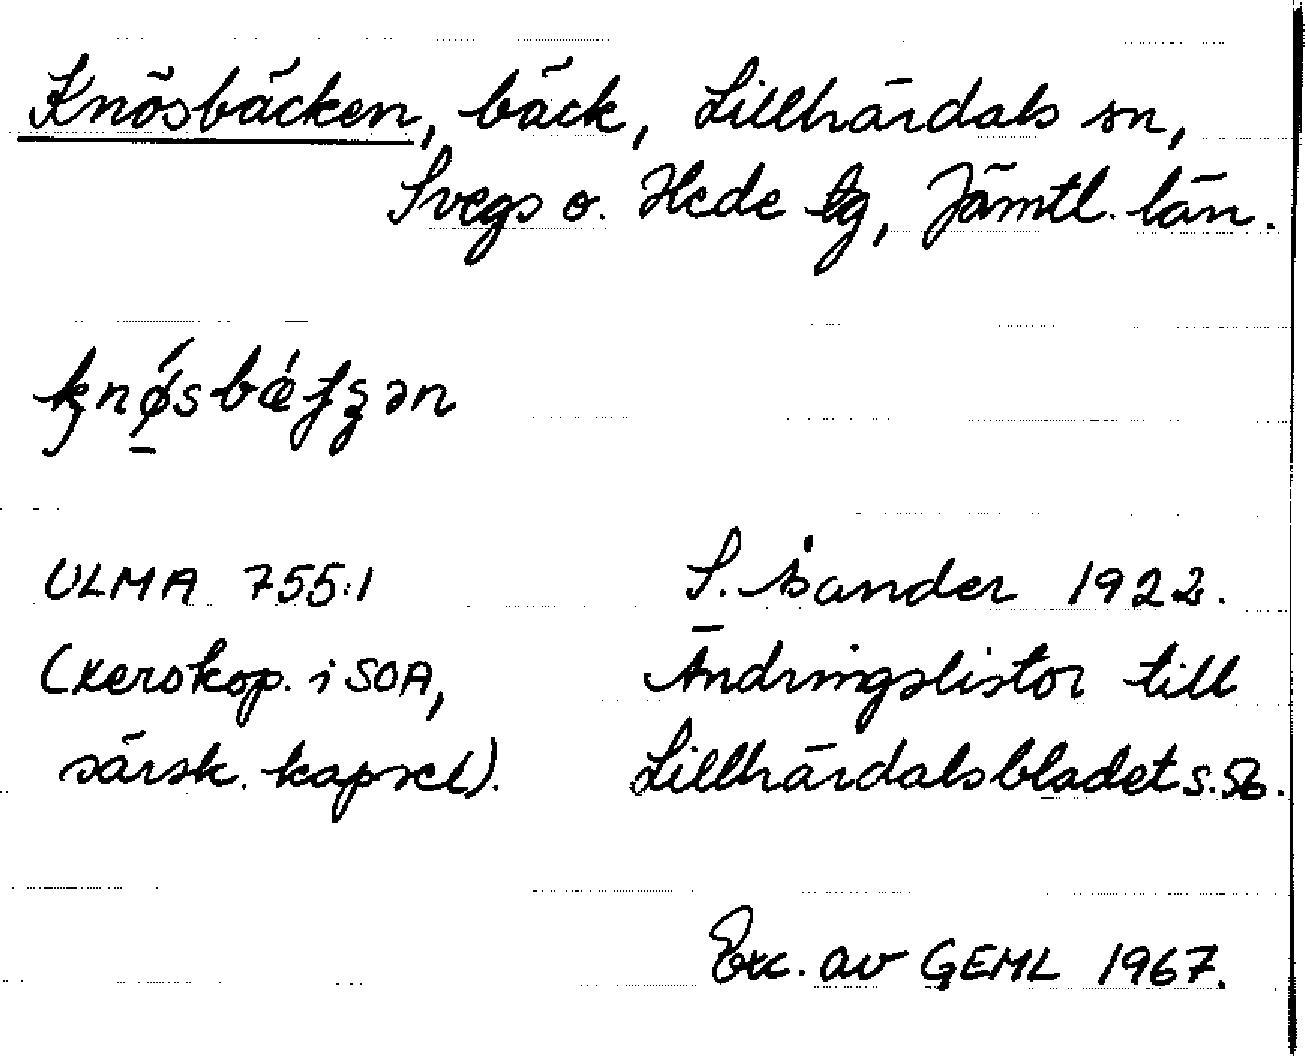 Knösbäcken, bäck, Lillhärdals sn,
Svegs o. Hede tg, Jämtl. län.
knǿ̱sbǽʃʒən
ULMA 755:1
S. Isander 1922.
(xeroskop. i SOA,
Ändringslistor till
särsk. kapsel).
Lillhärdalsbladet s.
Exc. av GEML 1967.